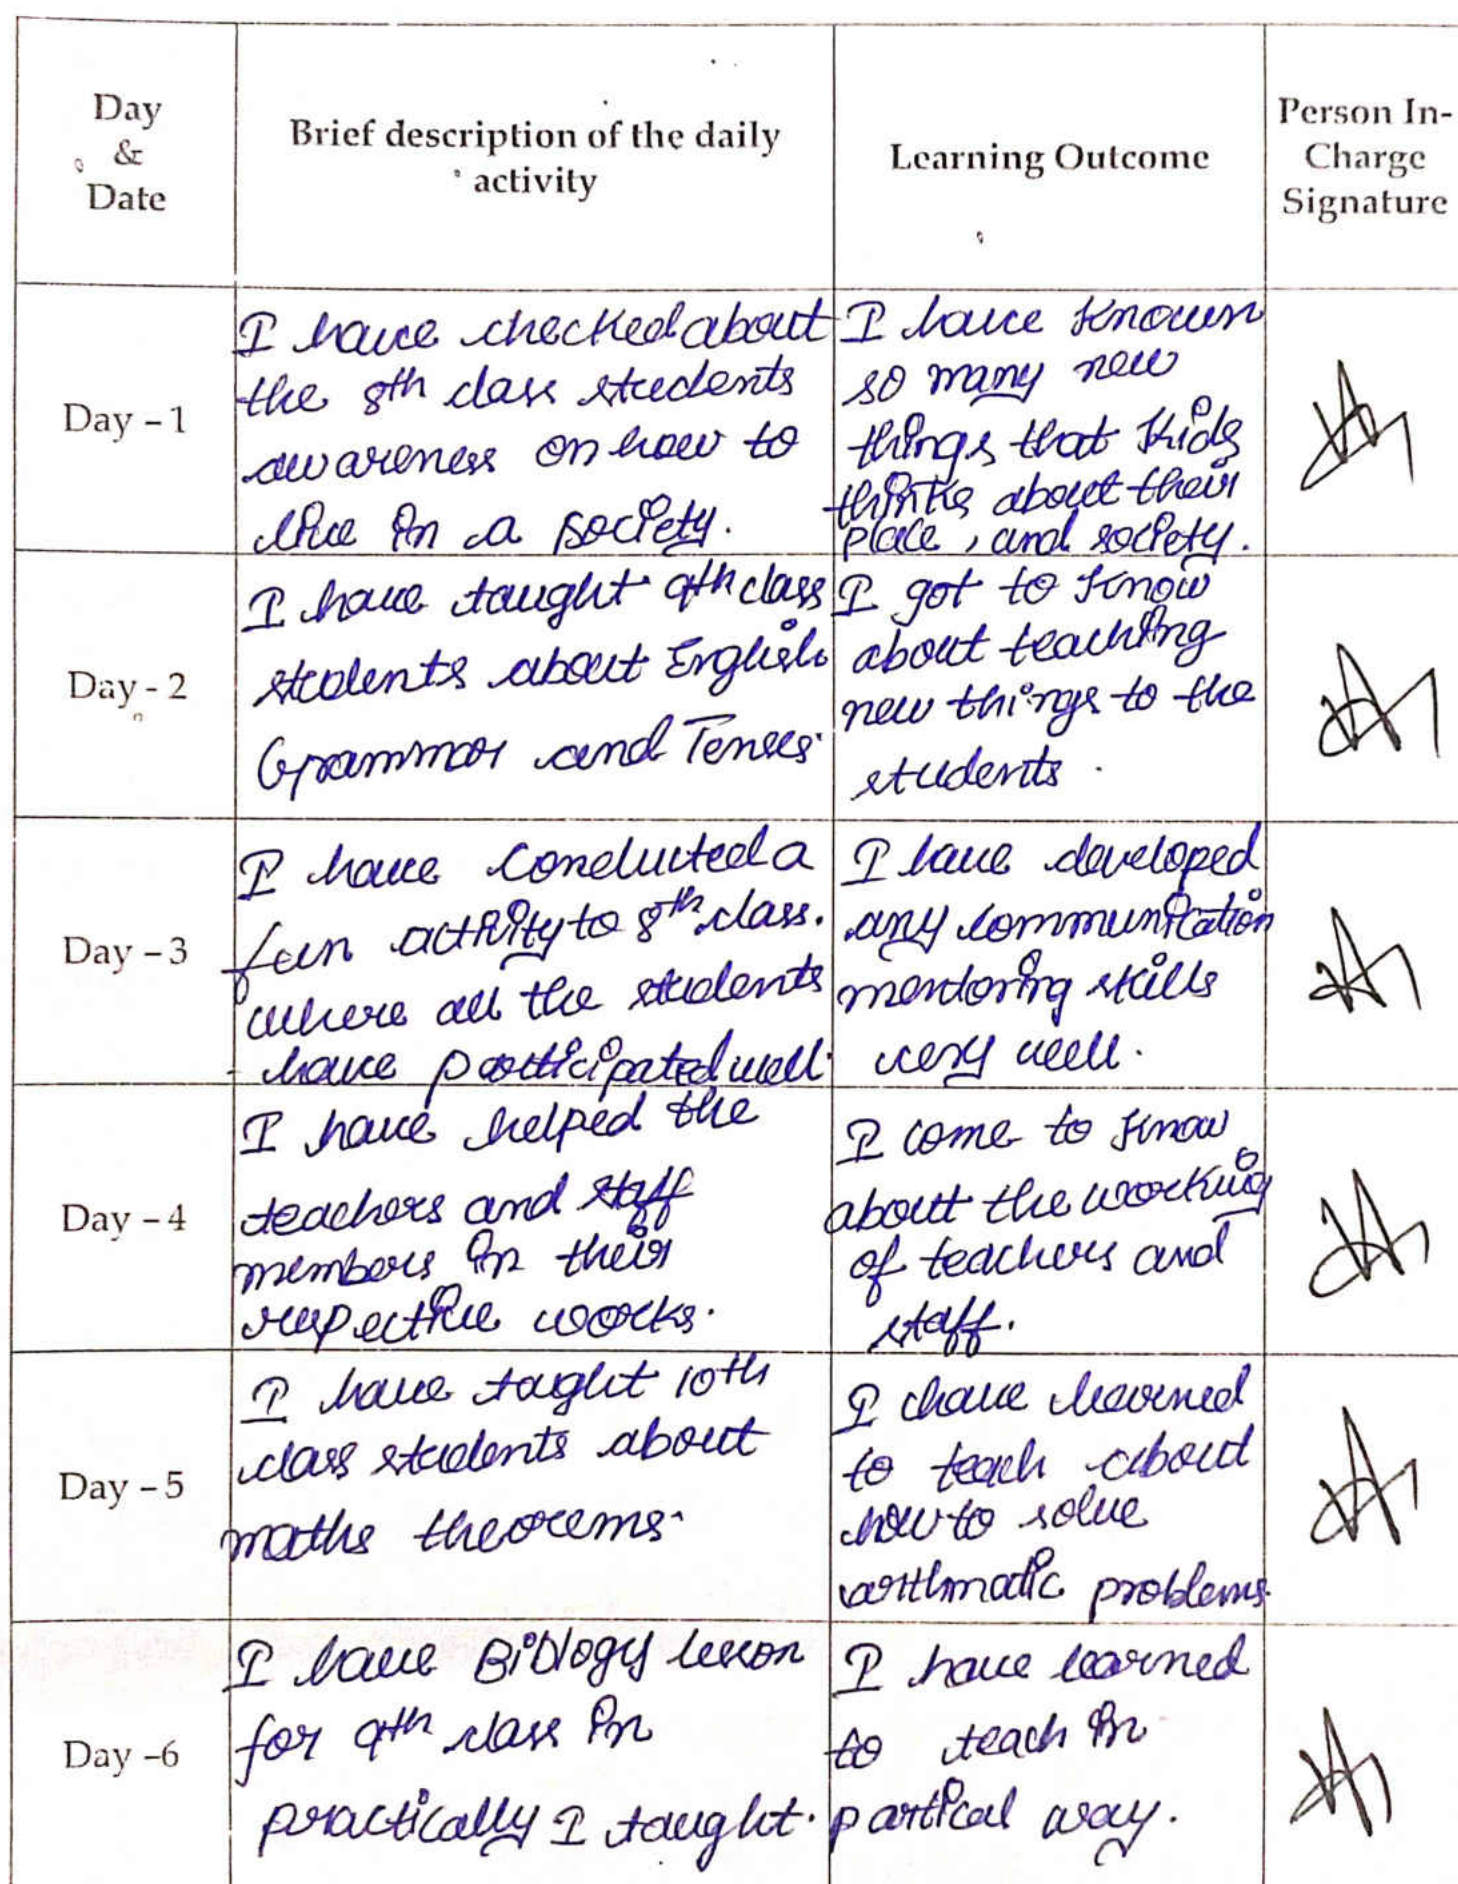 Day
&
Date
Brief description of the daily
activity
Learning Outcome
Person In-
Charge
Signature
Day - 1
I have checked about
the 8th class students
awareness on how to
live in a society.
I have known
so many new
things that kids
thinks about their
place, and society.
Day - 2
I have taught 9th class
students about English
Grammar and Tenses.
I got to know
about teaching
new things to the
students.
Day - 3
I have conducted a
fun activity to 8th class.
where all the students
have participated well.
I have developed
any communication
mentoring skills
very well.
Day - 4
I have helped the
teachers and staff
members in their
respective works.
I come to know
about the working
of teachers and
staff.
Day - 5
I have taught 10th
class students about
maths theorems.
I have learned
to teach about
how to solve
arithmatic problems.
Day -6
I have Biology lesson
for 9th class in
practically I taught.
I have learned
to teach in
partical way.